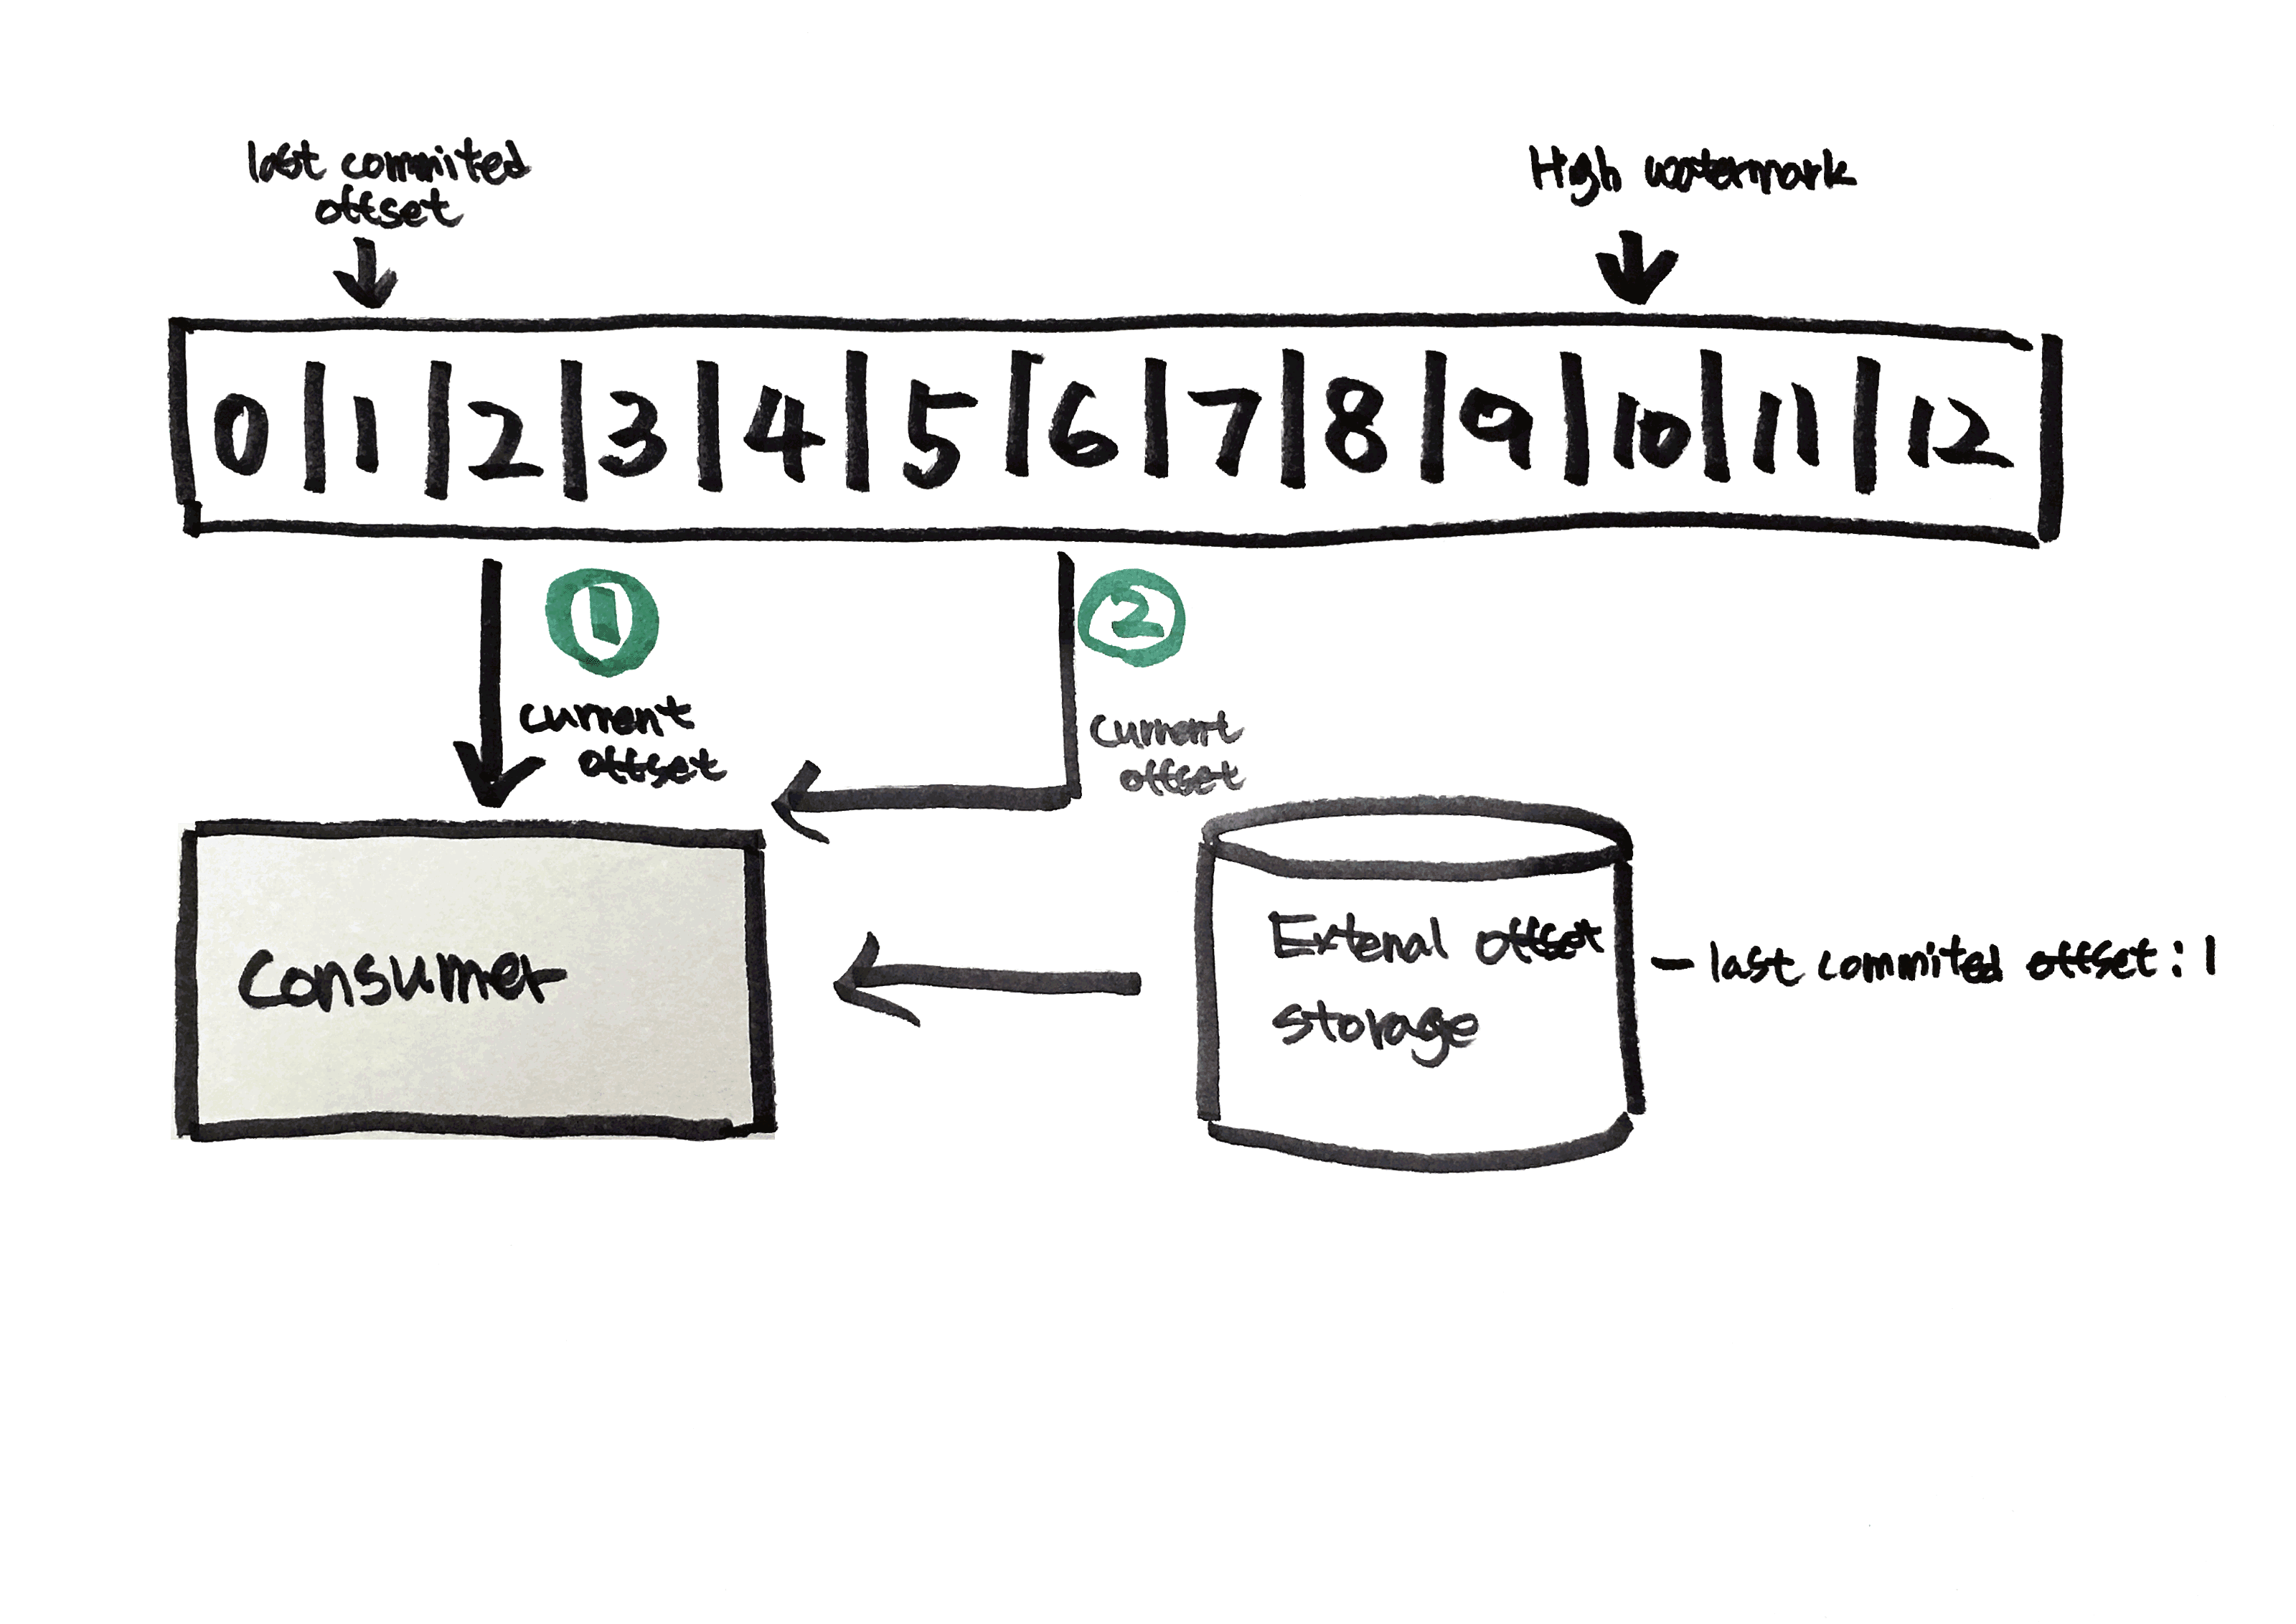 last commited
offset
High watermark
0 1 2 3 4 5 6 7 8 9 10 11 12
1
current
offset
2
current
offset
Consumer
Extenal offset
storage
- last commited offset : 1